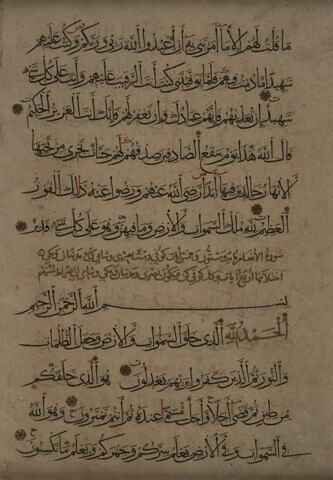 ما قلت لهم الا ما امرتني به ان اعبدوا الله ربي وربكم وكنت عليهم
شهيدا ما دمت فيهم فلما توفيتني كنت انت الرقيب عليهم وانت على كل شئ
شهيد ان تعذبهم فانهم عبادك وان تغفر لهم فانك انت العزيز الحكيم
قال الله هذا يوم ينفع الصادقين صدقهم لهم جنات تجري من تحتها
الانهار خالدين فيها ابدا رضي الله عنهم ورضوا عنه ذلك الفوز
العظيم لله ملك السموات والارض وما فيهن وهو على كل شئ قدير
سورة الانعام
بسم الله الرحمن الرحيم
الحمد لله الذي خلق السموات والارض وجعل الظلمات
والنور ثم الذين كفروا بربهم يعدلون هو الذي خلقكم
من طين ثم قضى اجلا واجل مسمى عنده ثم انتم تمترون وهو الله
في السموات وفي الارض يعلم سركم وجهركم ويعلم ما تكسبون